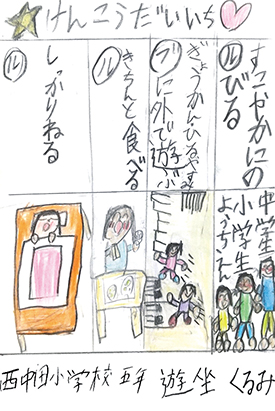 けんこうだいいち
ル
すこやかにの
びる
ぎょうかん・ひるやすみ
ブ
に外で遊ぶ
ル
きちんと食べる
ル
しっかりねる
中学生
小学生
ようちえん
西中田小学校 五年 遊坐 くるみ